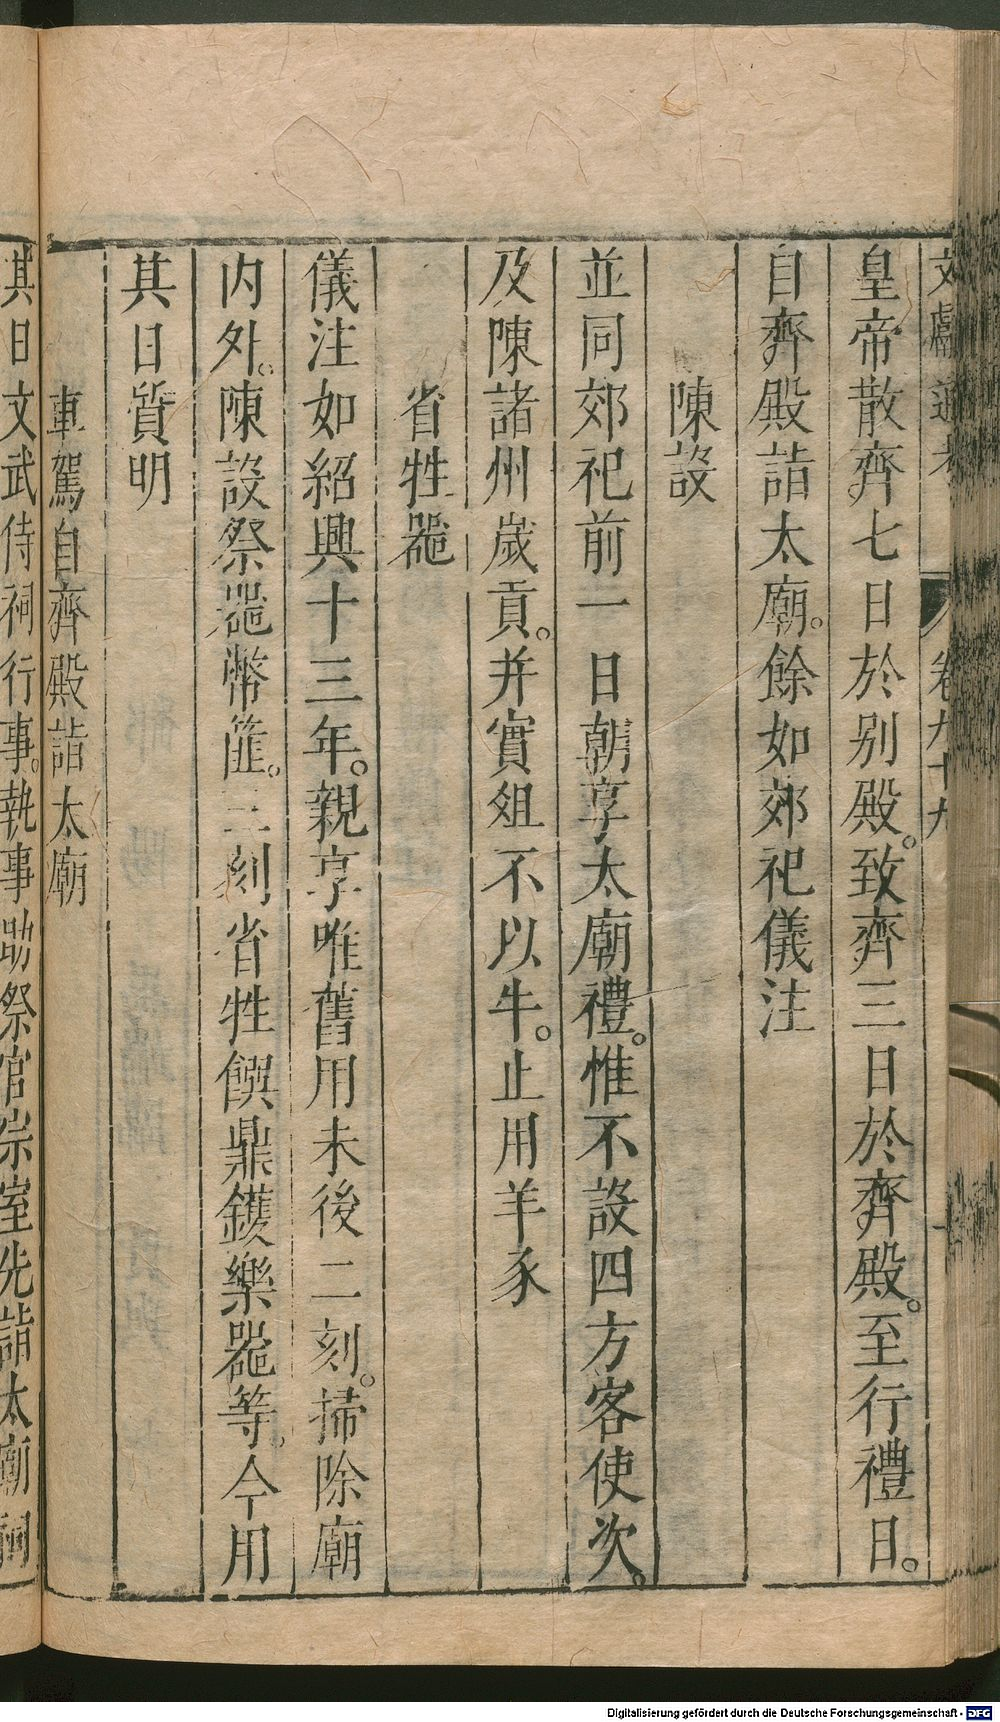 文獻通考 卷九十九
皇帝散齊七日於別殿。致齊三日於齊殿。至行禮日。
自齊殿詣太廟。餘如郊祀儀注
陳設
並同郊祀前一日朝享太廟禮。惟不設四方客使次。
及陳諸州歲貢。并實俎不以牛。止用羊豕
省牲器
儀注如紹興十三年。親享唯舊用未後二刻。掃除廟
內外。陳設祭器幣篚。三刻省牲饌鼎鑊樂器等。今用
其日質明
車駕自齊殿詣太廟
其日文武侍祠行事。執事助祭官宗室先詣太廟祠
Digitalisierung gefördert durch die Deutsche Forschungsgemeinschaft - DFG